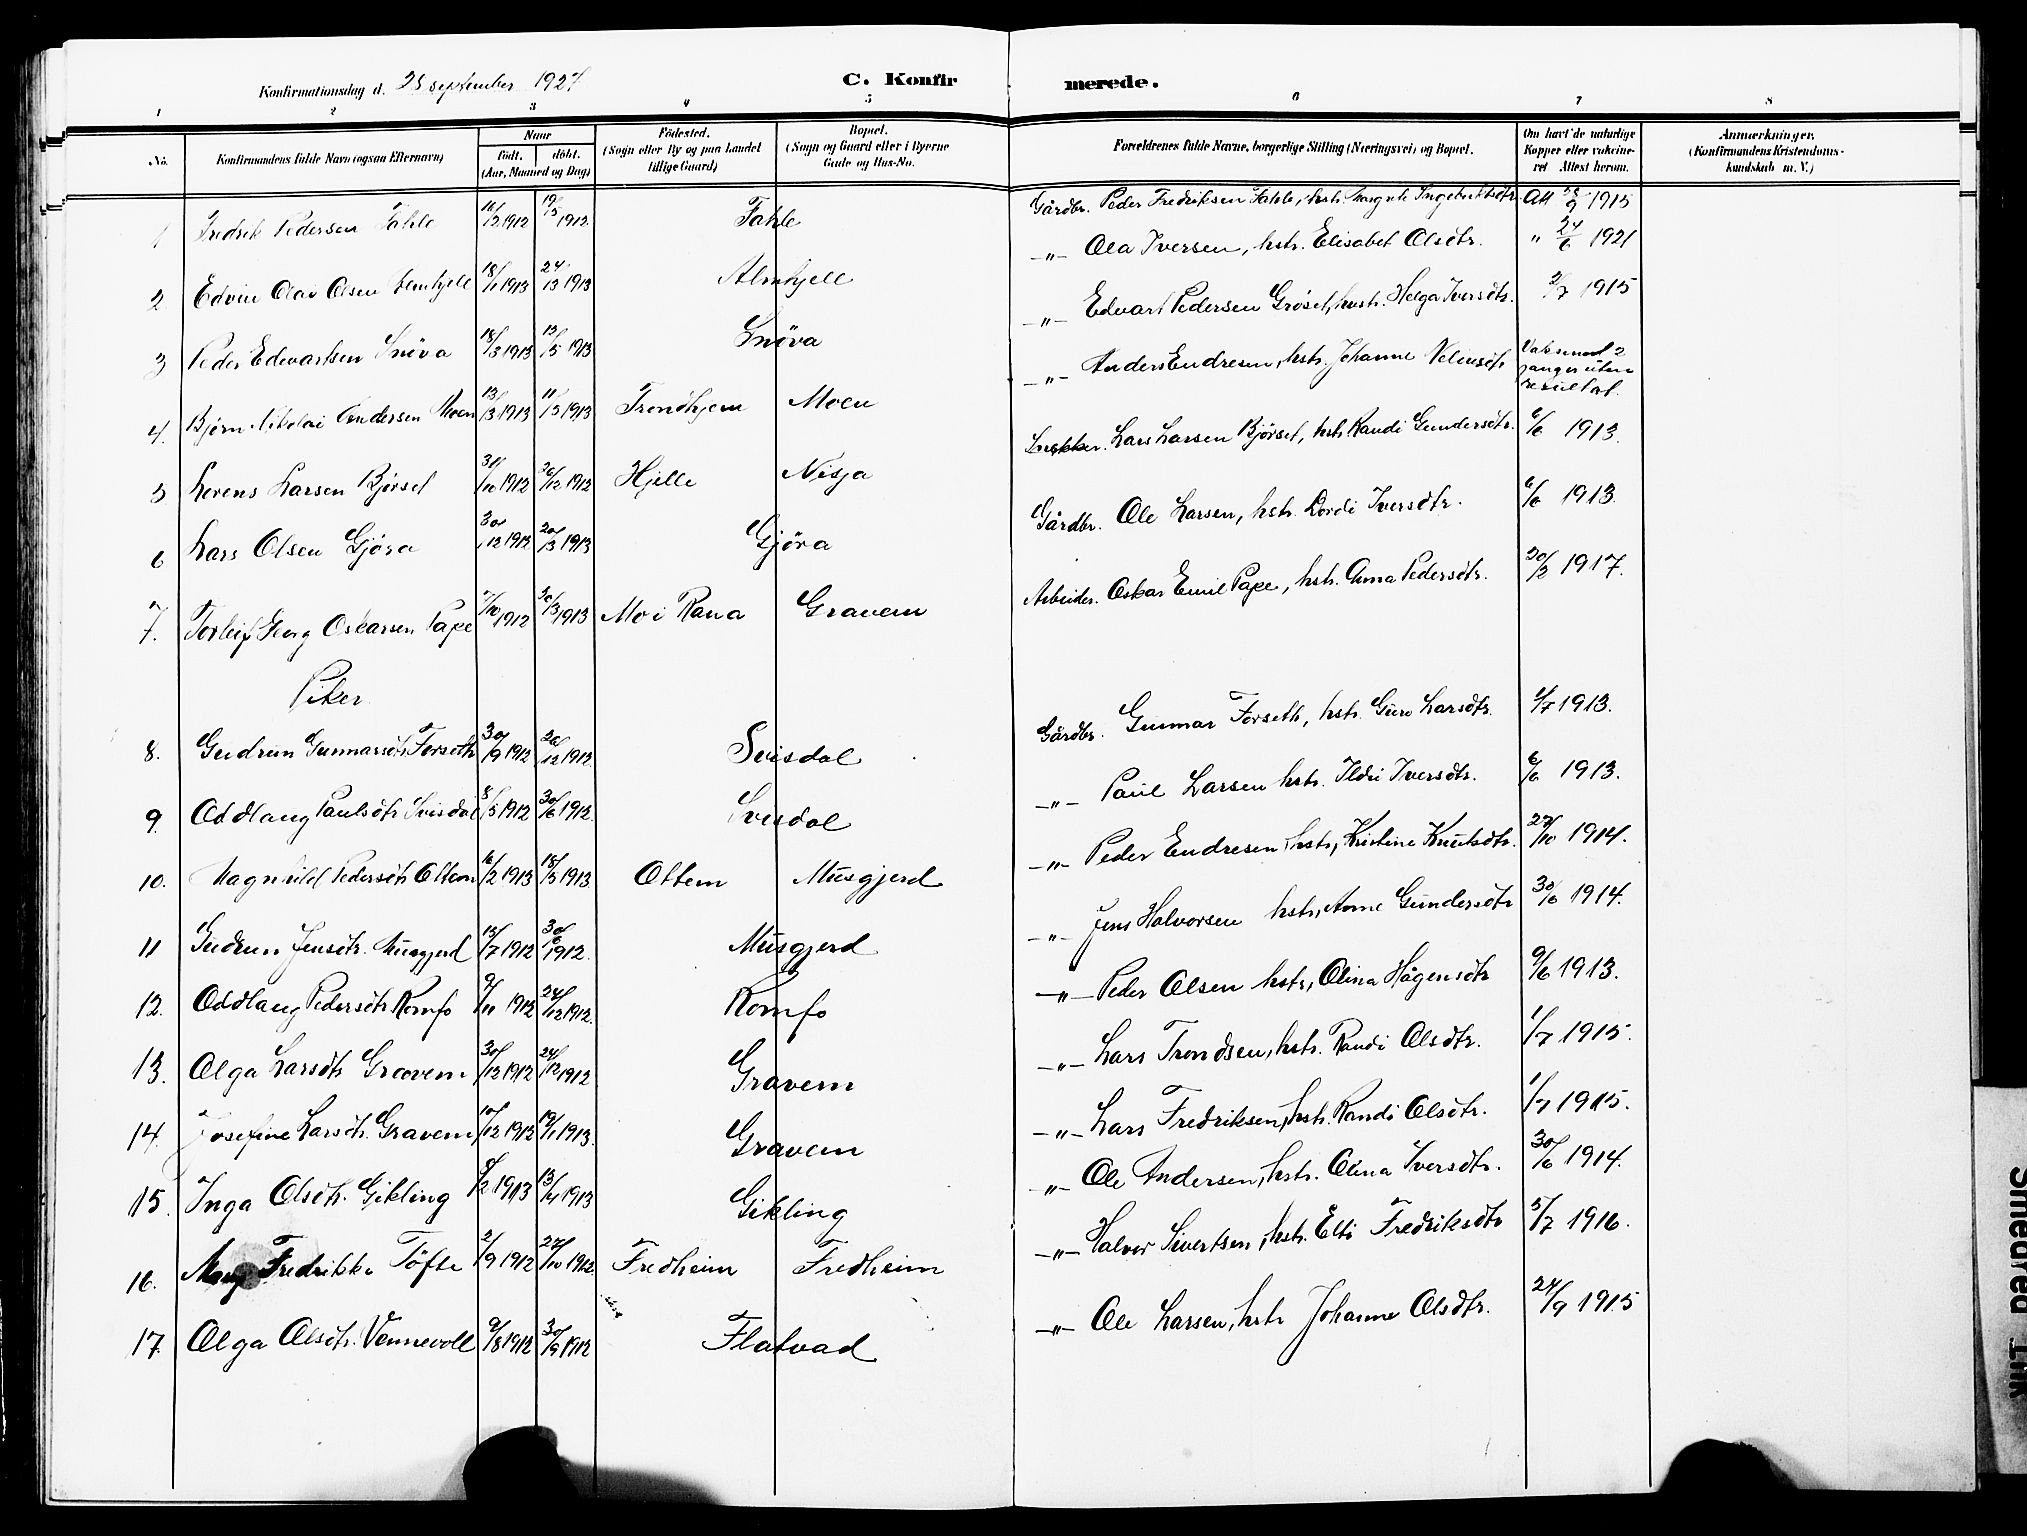 Konfirmationsdag d. 25 september 1927
C. Konfirmerede.
1 2 3 4 5 6 7 8
No. Konfirmandens fulde Navn (ogsaa Efternavn) Naar født. døbt. (Aar, Maaned og Dag) Födested. (Sogn eller By og paa Landet tillige Gaard) Bopæl. (Sogn og Gaard eller i Byerne Gade og Hus-No. Forældrenes fulde Navne, borgerlige Stilling (Næringsvei) og Bopæl. Om havt de naturlige Kopper eller vakcineret Attest herom. Anmærkninger. (Konfirmandens Kristendomskundskab m. V.)
1 Fredrik Pedersen Fahle 16/2 1912 19/5 1912 Fahle Gårdbr. Peder Fredriksen Fahle, hstr. Margrete Ingebriktsdtr. Att 28/9 1915
2 Edvin Olai Olsen Almhjell 18/1 1913 24/3 1913 Almhjell -"- Ola Iversen, hstr. Elisabet Olsdtr. " 24/6 1921
3 Peder Edvartsen Snöva 18/3 1913 13/5 1913 Snöva -"- Edvart Pedersen Grøset, hustr. Helga Iversdtr. 2/7 1915
4. Bjørn Nikolai Andersen Moen 13/3 1913 11/5 1913 Trondhjem Moen -"- Anders Endresen, hstr. Johanne Nelsusdtr. Vaksinert 2 ganger uten resultat.
5 Lorens Larsen Bjørset 31/10 1912 26/12 1912 Hjelle Nisja Snekker. Lars Larsen Bjørset, hstr. Randi Gundersdtr. 6/6 1913.
6 Lars Olsen Gjøra 30/12 1912 20/3 1913 Gjöra Gårdbr. Ole Larsen, hstr. Dordi Iversdtr. 6/6 1913
7. Torleif Georg Oskarsen Pape 7/10 1912 30/3 1913 Mo i Rana Gravem Arbeider. Oskar Emil Pape, hstr. Anna Pedersdtr. 20/2 1917.
Piker
8. Gudrun Gunnarsdtr. Forseth 30/9 1912 26/12 1912. Svisdal Gårdbr. Gunnar Forseth, hstr. Guro Larsdtr. 1/7 1913.
9. Oddlaug Paulsdtr. Svisdal 8/5 1912 30/6 1912. Svisdal -"- Paul Larsen hstr. Ildri Iversdtr. 6/6 1913.
10. Magnhild Pedersdtr. Ottem 16/2 1913 18/5 1913. Ottem Musgjerd -"- Peder Endresen hstr, Kristine Knutsdtr. 27/10 1914.
11 Gudrun Jensdtr. Musgjerd 15/7 1912 30/8 1912. Musgjerd -"- Jens Halvorsen hstr, Anne Gundersdtr 30/6 1914.
12. Oddlaug Pedersdtr. Romfo 9/11 1912 24/12 1912. Romfo -"- Peder Olsen hstr, Olina Hågensdtr 9/6 1913.
13. Olga Larsdtr. Gravem 30/12 1912 24/12 1912 Gravem -"- Lars Trondsen, hstr. Randi Olsdtr. 1/7 1915.
14. Josefine Larsdtr. Gravem 10/12 1912 19/1 1913. Gravem -"- Lars Fredriksen, hstr. Randi Olsdtr. 1/7 1915.
15. Inga Olsdtr. Gikling 8/2 1913 13/4 1913 Gikling -"- Ole Andersen, hstr. Olina Iversdtr. 30/6 1914.
16. Mary Fredrikke Töfte 2/9 1912 27/10 1912. Fredheim Fredheim -"- Halvor Sivertsen, hstr. Elti Fredriksdtr 5/7 1916.
17. Olga Olsdtr. Vennevoll 9/8 1912 30/9 1912 Flatvad -"- Ole Larsen, hstr Johanne Olsdtr. 24/9 1915
Smeared Ink